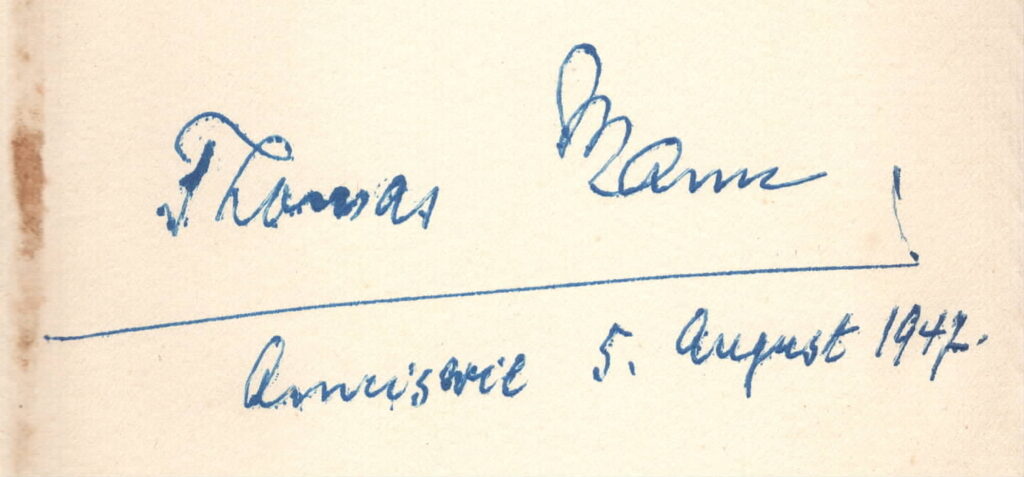 Thomas Mann
Amriswil 5. August 1947.